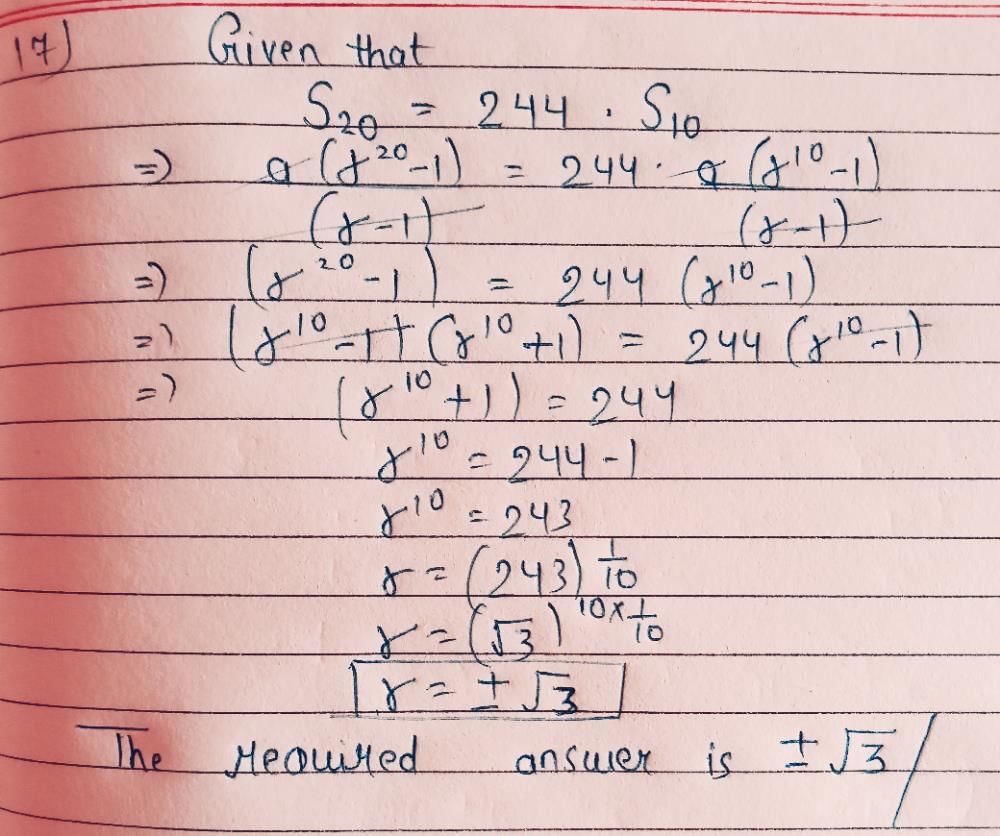 17) Given that
S₂₀ = 244 . S₁₀
=) a (r²⁰ -1) = 244 . a (r¹⁰ -1)
(r -1) (r -1)
=) (r²⁰ -1) = 244 (r¹⁰ -1)
=) (r¹⁰ -1) (r¹⁰ +1) = 244 (r¹⁰ -1)
=) (r¹⁰ +1) = 244
r¹⁰ = 244 - 1
r¹⁰ = 243
r = (243) 1/10
r = (√3) 10 x 1/10
r = ± √3
The required answer is ± √3 /